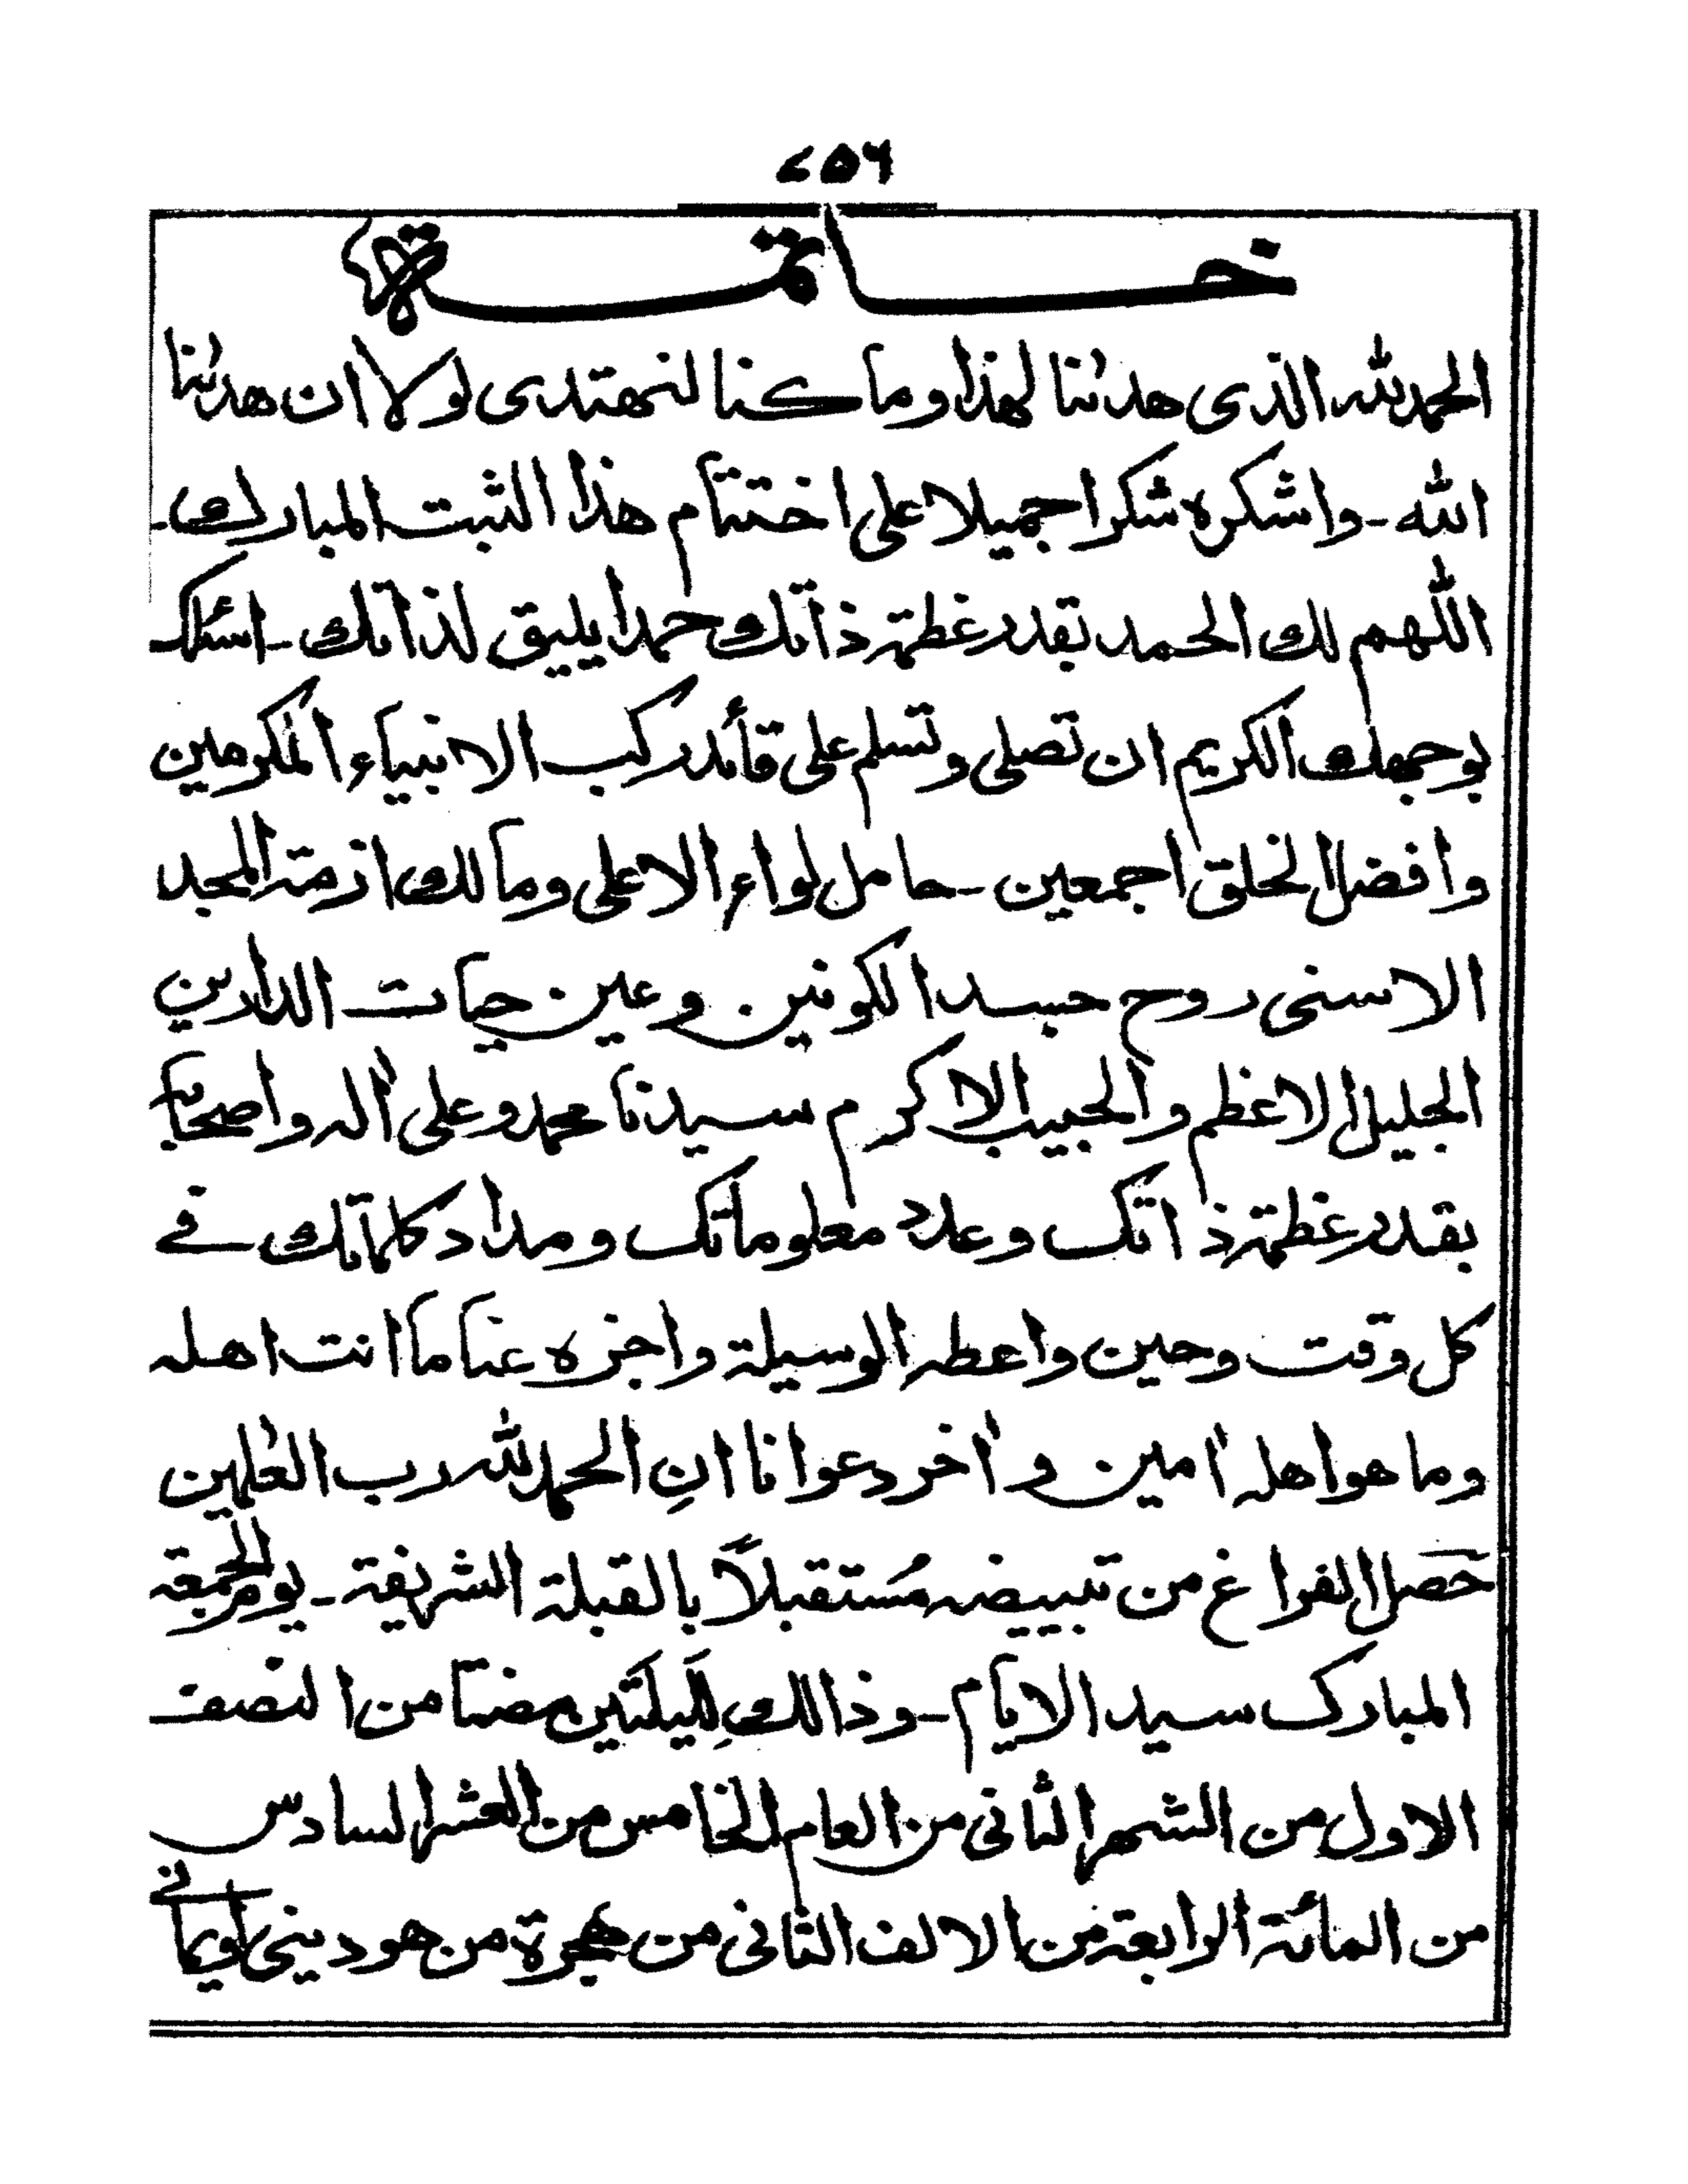 ٢٥٦
خاتمة
الحمد لله الذى هدٰىنا لهٰذا وما كنا لنهتدى لولا ان هدٰىنا
الله - واشكره شكرا جميلا على اختتام هذا الثبت المبارك -
اللهم لك الحمد بقدر عظمة ذاتك حمدا يليق لذاتك - اسئلك
بوجهك الكريم ان تصلى وتسلم على قائد ركب الانبياء المكرمين
وافضل الخلق اجمعين - حامل لواء الاعلى ومالك ازمة المجد
الاسنى روح جسد الكونين وعين حيات الدارين
الجليل الاعظم والحبيب الاكرم سيدنا محمد وعلى اٰله واصحابه
بقدر عظمة ذاتك وعدد معلوماتك ومداد كلماتك فے
كل وقت وحين واعطه الوسيلة واجزه عنا ما انت اهله
وما هو اهله اٰمين واٰخر دعوانا انِ الحمد لله رب العٰلمين
حَصل الفراغ من تبييضه مُستقبلاً بالقبلة الشريفة - يوم الجمعة
المبارك سيد الايام - وذالك لِلَيلتين مضتا من النصف
الاول من الشهر الثانى من العام الخامس من العشر السادس
من المائة الرابعة من الالف الثانى من هجرة من هو دينى وايمانے